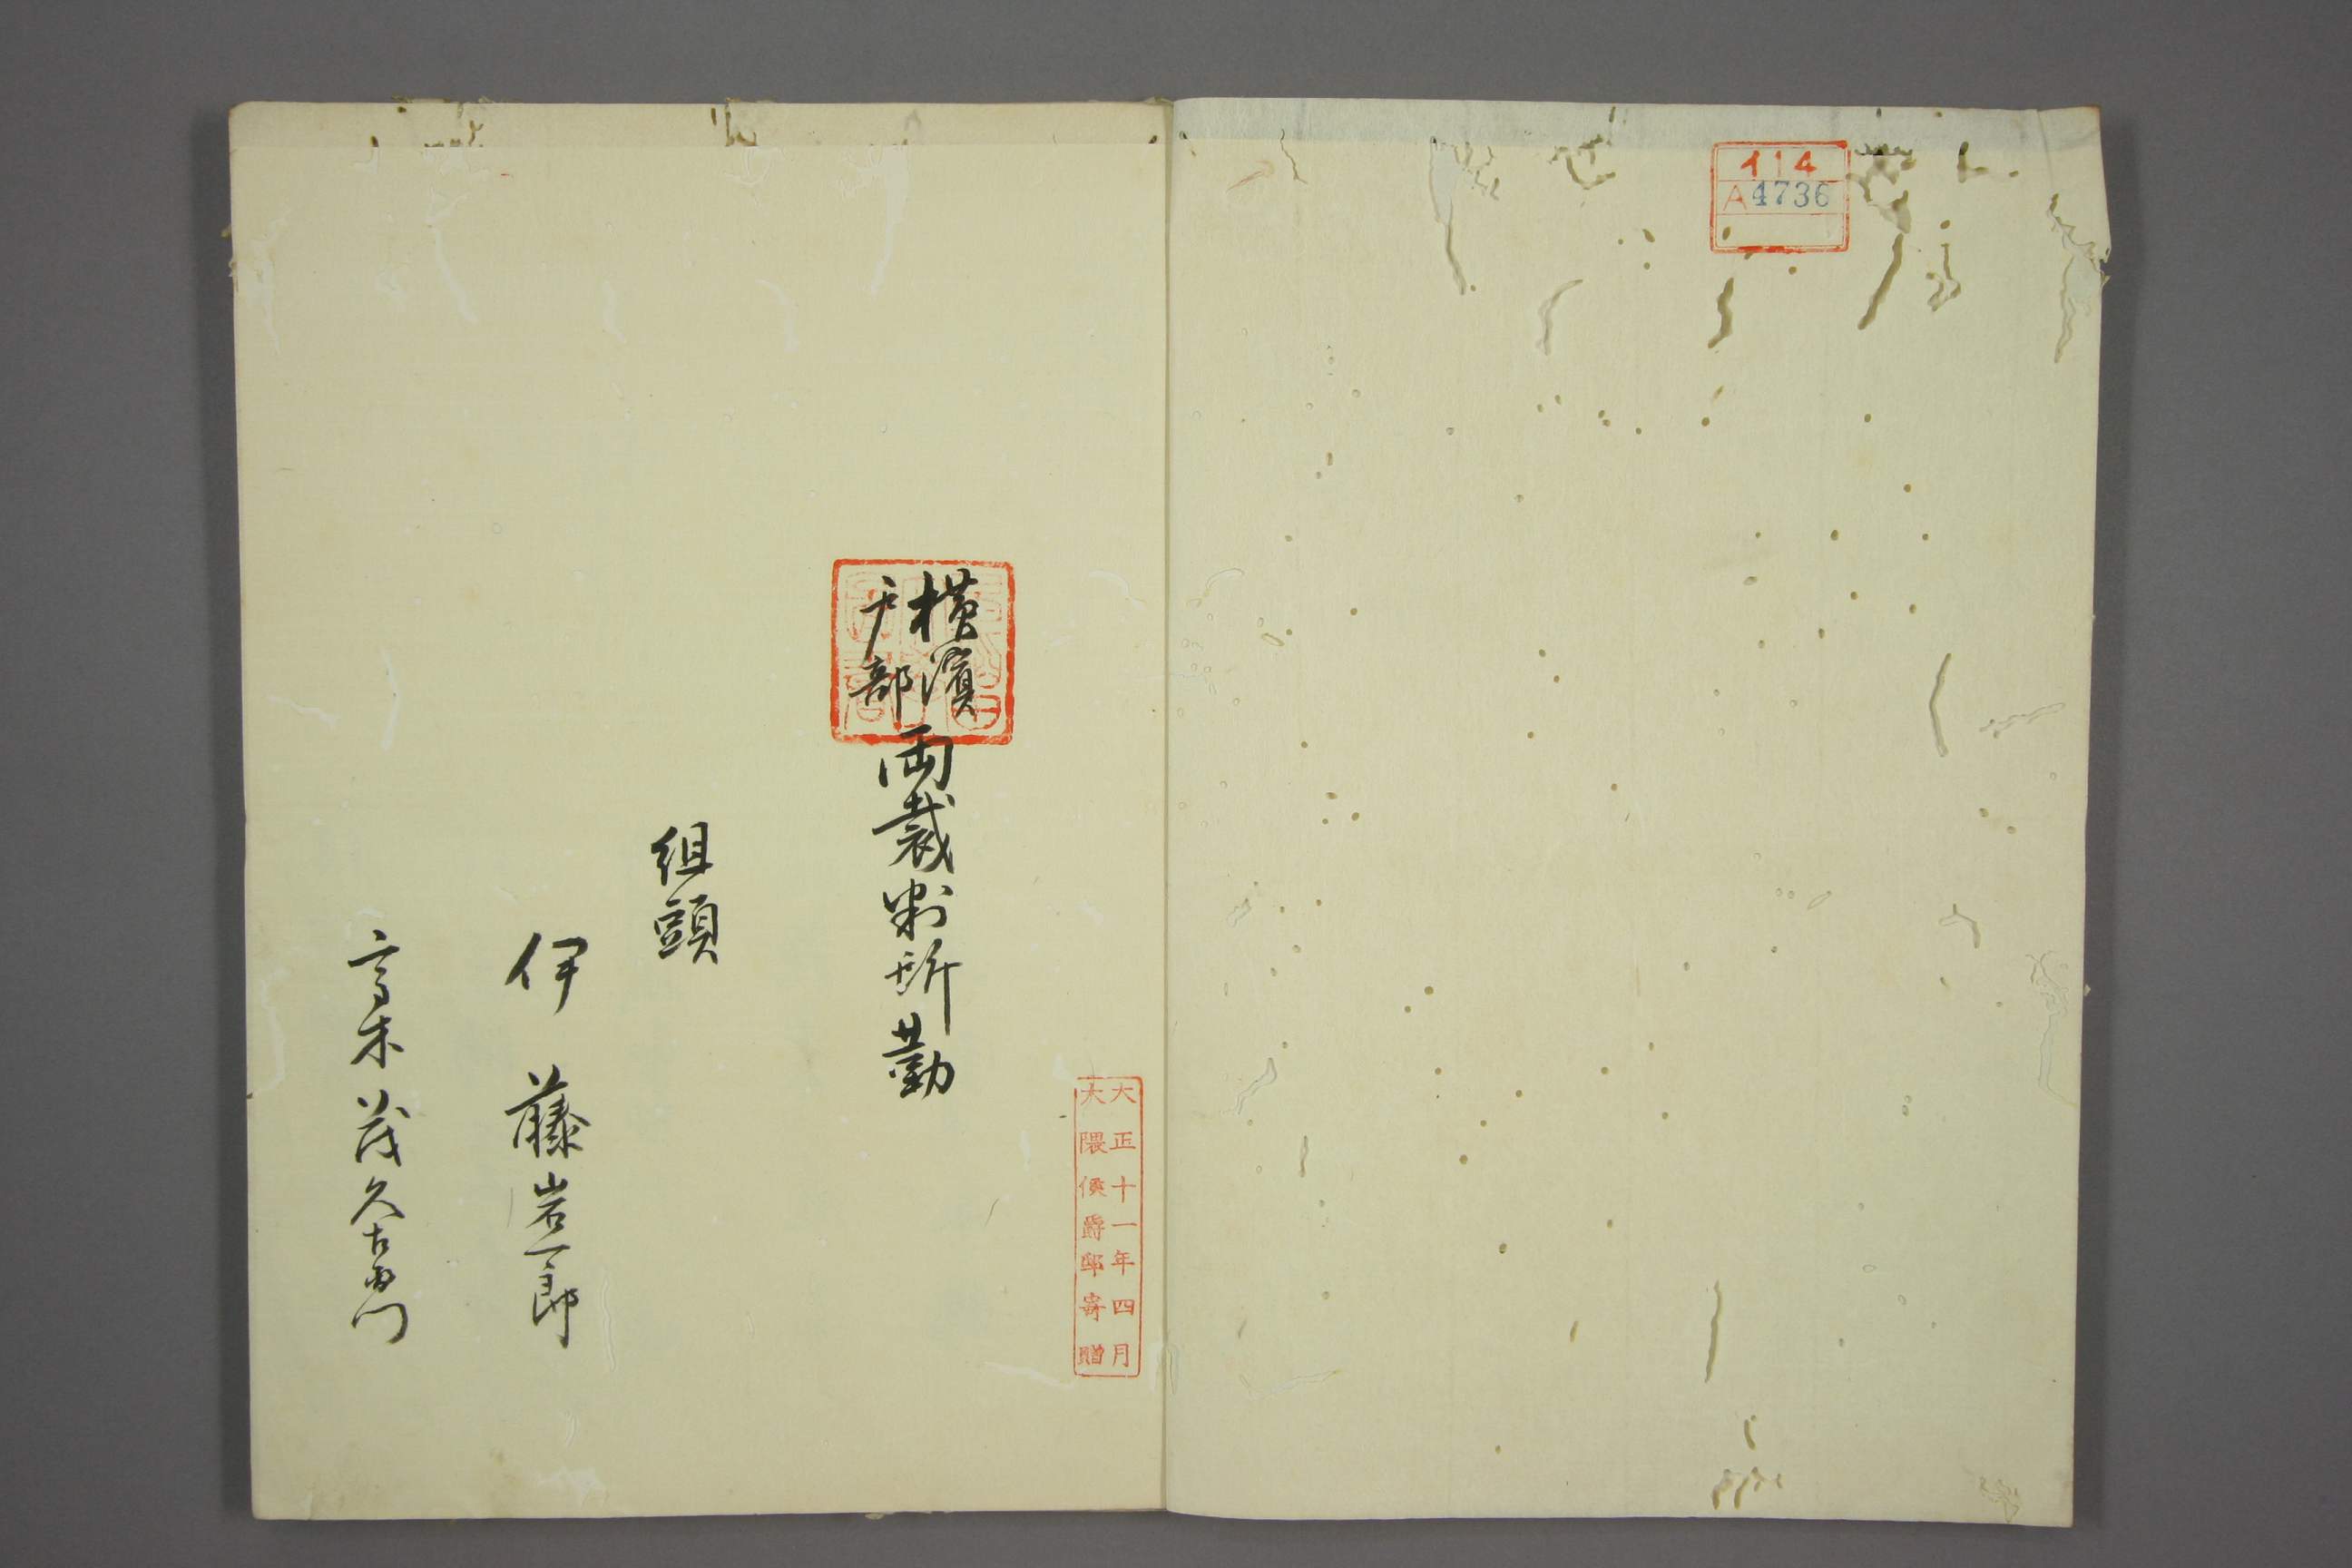 イ14
A4736
大正十一年四月
大隈侯爵邸寄贈
横濱
戸部
両裁判所勤
組頭
伊藤岩一郎
高木茂久右衛門